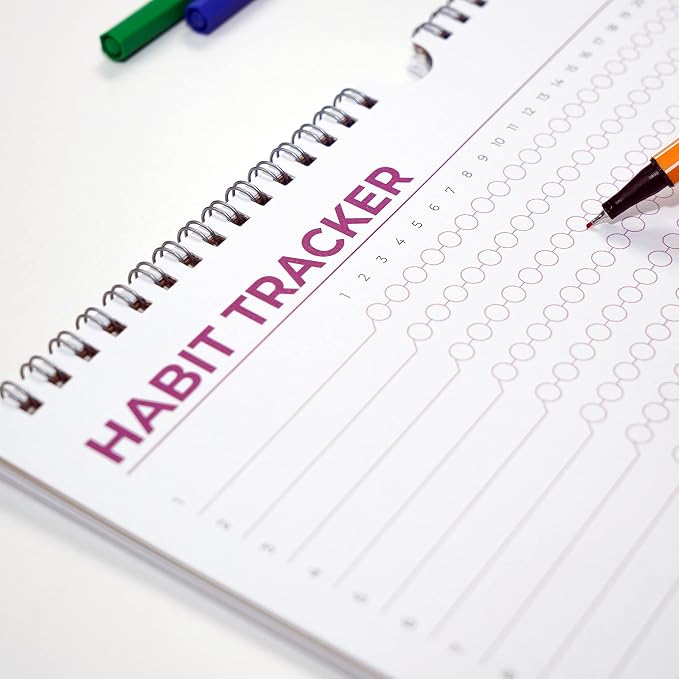 HABIT TRACKER
1 2 3 4 5 6 7 8 9 10 11 12 13 14 15 16 17 18 19 20
1
2
3
4
5
6
7
8